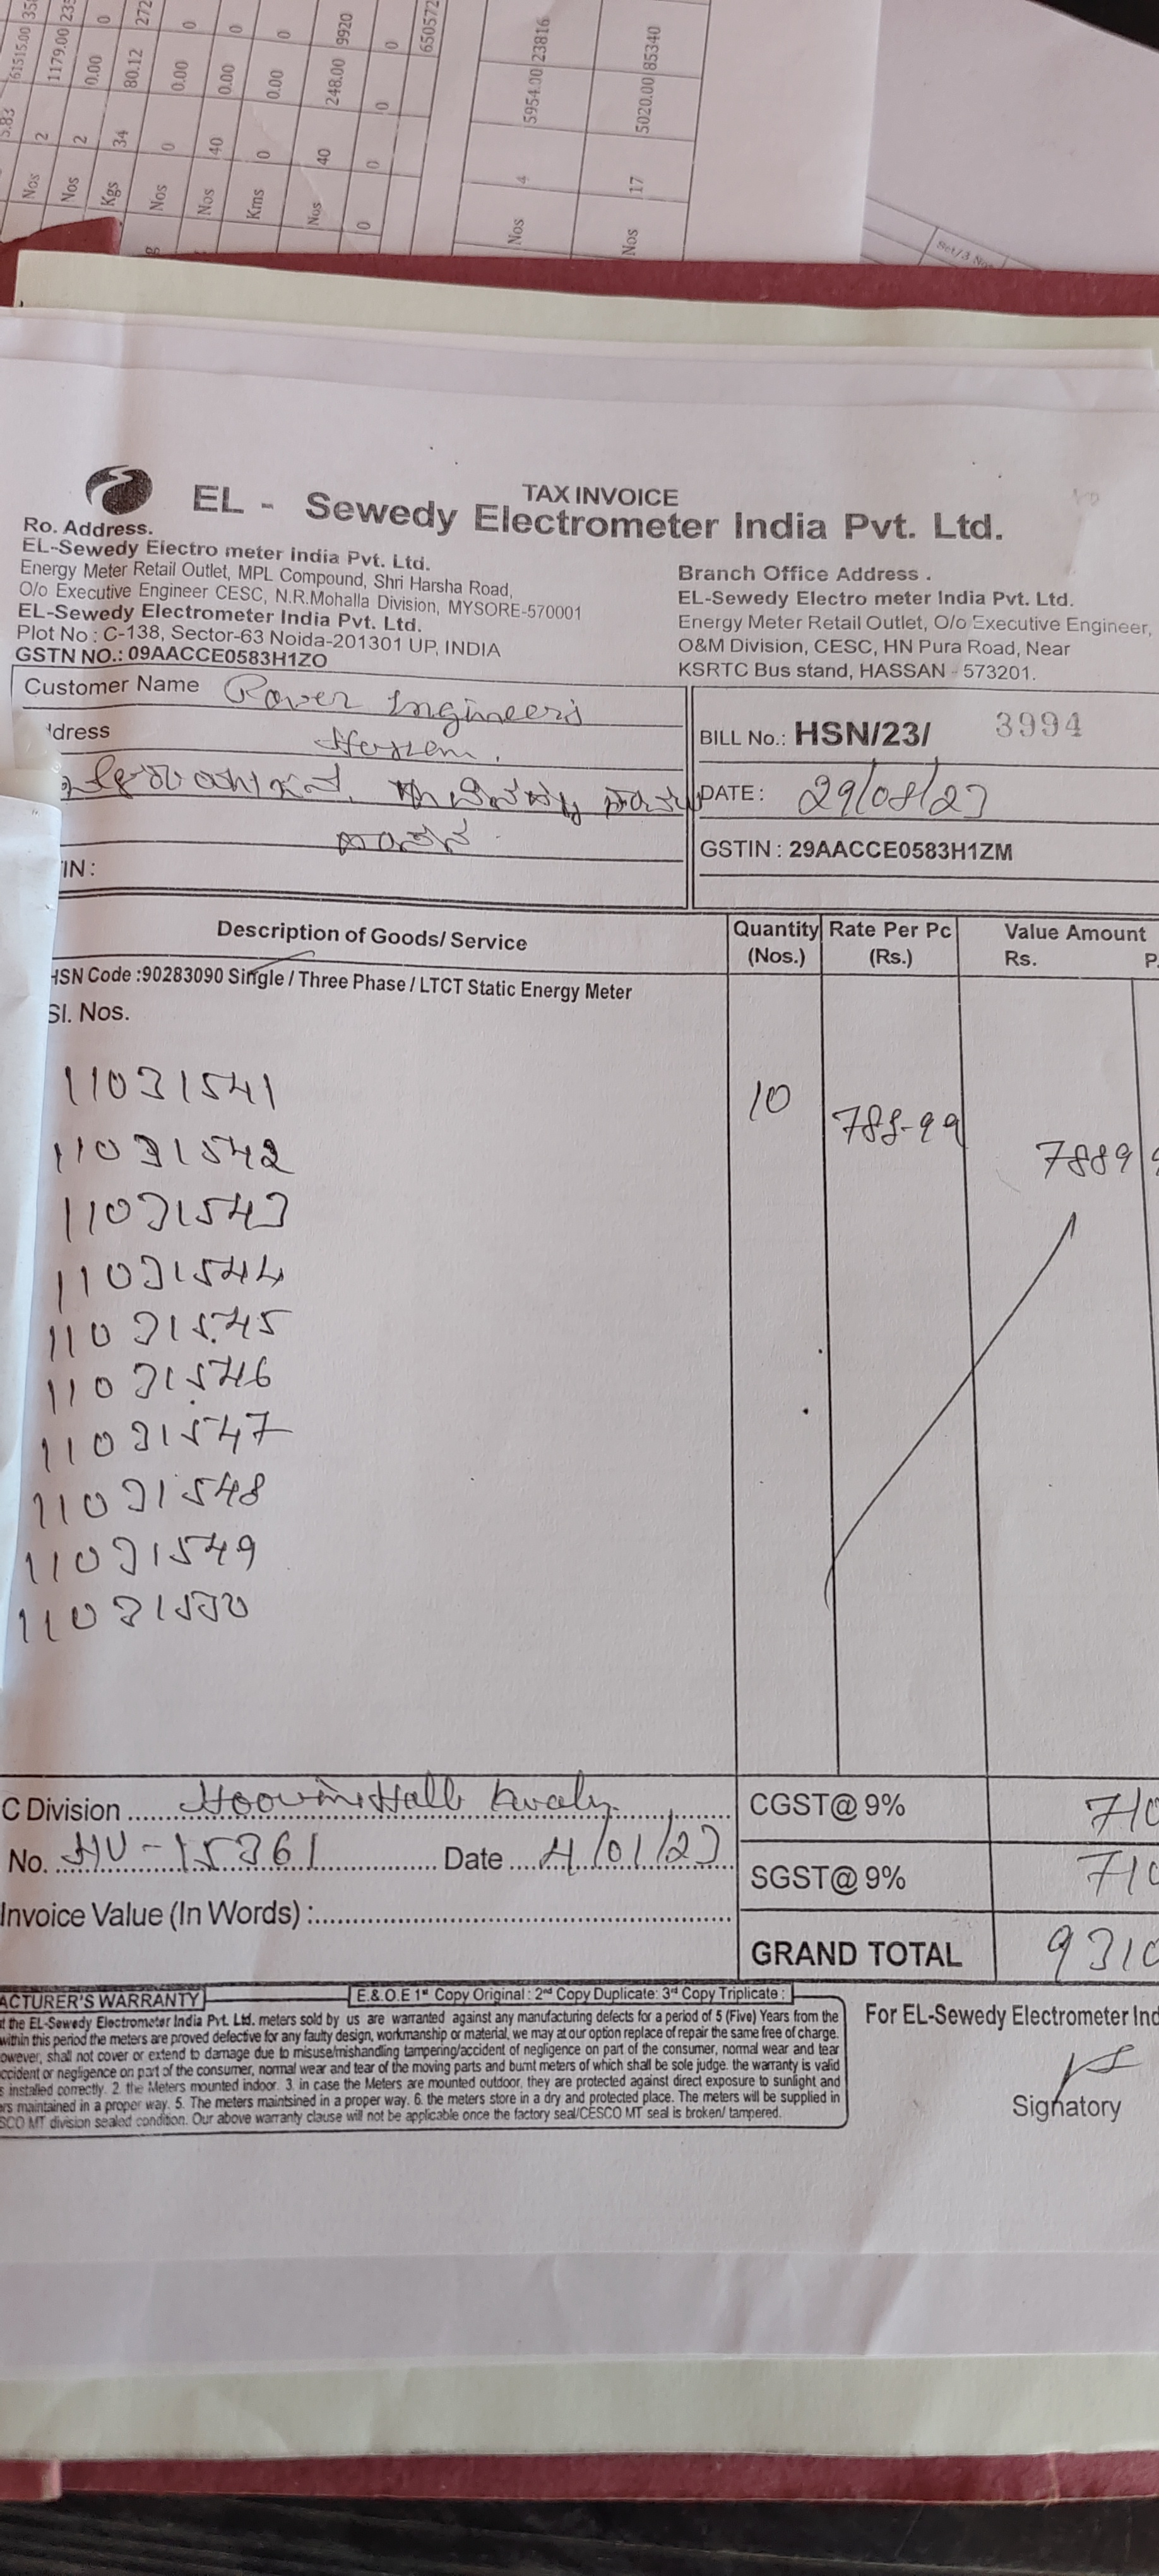 5.83
Nos 2 61515.00 35
Nos 2 1179.00 23
Kgs 34 0.00 0
Nos 0 80.12 272
Nos 40 0.00 0
Kms 0 0.00 0
Nos 40 0.00 0
0 0 248.00 9920
0
650572
Nos 4 5954.00 23816
Nos 17 5020.00 85340
TAX INVOICE
EL - Sewedy Electrometer India Pvt. Ltd.
Ro. Address.
EL-Sewedy Electro meter India Pvt. Ltd.
Energy Meter Retail Outlet, MPL Compound, Shri Harsha Road,
O/o Executive Engineer CESC, N.R.Mohalla Division, MYSORE-570001
EL-Sewedy Electrometer India Pvt. Ltd.
Plot No : C-138, Sector-63 Noida-201301 UP, INDIA
GSTN NO.: 09AACCE0583H1ZO
Branch Office Address .
EL-Sewedy Electro meter India Pvt. Ltd.
Energy Meter Retail Outlet, O/o Executive Engineer,
O&M Division, CESC, HN Pura Road, Near
KSRTC Bus stand, HASSAN - 573201.
Customer Name Power Engineers
dress
IN :
BILL No.: HSN/23/ 3994
DATE : 29/08/23
GSTIN : 29AACCE0583H1ZM
Description of Goods/ Service
Quantity (Nos.)
Rate Per Pc (Rs.)
Value Amount
Rs. P.
HSN Code :90283090 Single / Three Phase / LTCT Static Energy Meter
Sl. Nos.
11031541 10 788-99 7889
11031542
11031543
11031544
11031545
11031546
11031547
11031548
11031549
11031550
C Division
No. HV-15361 Date 4/01/23
Invoice Value (In Words) :
CGST@ 9% 710
SGST@ 9% 710
GRAND TOTAL 9310
ACTURER'S WARRANTY
E.& O.E 1st Copy Original : 2nd Copy Duplicate: 3rd Copy Triplicate :
t the EL-Sewedy Electrometer India Pvt. Ltd. meters sold by us are warranted against any manufacturing defects for a period of 5 (Five) Years from the
within this period the meters are proved defective for any faulty design, workmanship or material, we may at our option replace of repair the same free of charge.
owever, shall not cover or extend to damage due to misuse/mishandling tampering/accident of negligence on part of the consumer, normal wear and tear
ccident or negligence on part of the consumer, normal wear and tear of the moving parts and burnt meters of which shall be sole judge. the warranty is valid
s installed correctly. 2. the Meters mounted indoor. 3. in case the Meters are mounted outdoor, they are protected against direct exposure to sunlight and
ers maintained in a proper way. 5. The meters maintsined in a proper way. 6. the meters store in a dry and protected place. The meters will be supplied in
SCO MT division sealed condition. Our above warranty clause will not be applicable once the factory seal/CESCO MT seal is broken/ tampered.
For EL-Sewedy Electrometer Ind
Signatory